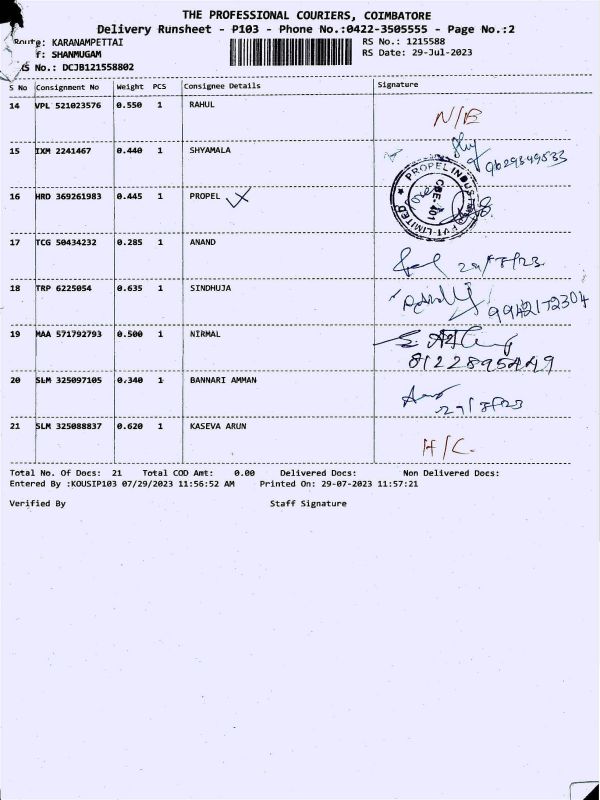 THE PROFESSIONAL COURIERS, COIMBATORE
Delivery Runsheet - P103 - Phone No.:0422-3505555 - Page No.:2
Route: KARANAMPETTAI
RS No.: 1215588
f: SHANMUGAM
RS Date: 29-Jul-2023
S No.: DCJB121558802
S No Consignment No Weight PCS Consignee Details Signature
14 VPL 521023576 0.550 1 RAHUL N/E
15 IXM 2241467 0.440 1 SHYAMALA 9629349533
16 HRD 369261983 0.445 1 PROPEL
PROPEL INDUSTRIES PVT LIMITED
CBE-401
17 TCG 50434232 0.285 1 ANAND 29/7/23
18 TRP 6225054 0.635 1 SINDHUJA 9942172304
19 MAA 571792793 0.500 1 NIRMAL
8122895449
20 SLM 325097105 0.340 1 BANNARI AMMAN
29/7/23
21 SLM 325088837 0.620 1 KASEVA ARUN H/C.
Total No. Of Docs: 21 Total COD Amt: 0.00 Delivered Docs: Non Delivered Docs:
Entered By :KOUSIP103 07/29/2023 11:56:52 AM Printed On: 29-07-2023 11:57:21
Verified By Staff Signature